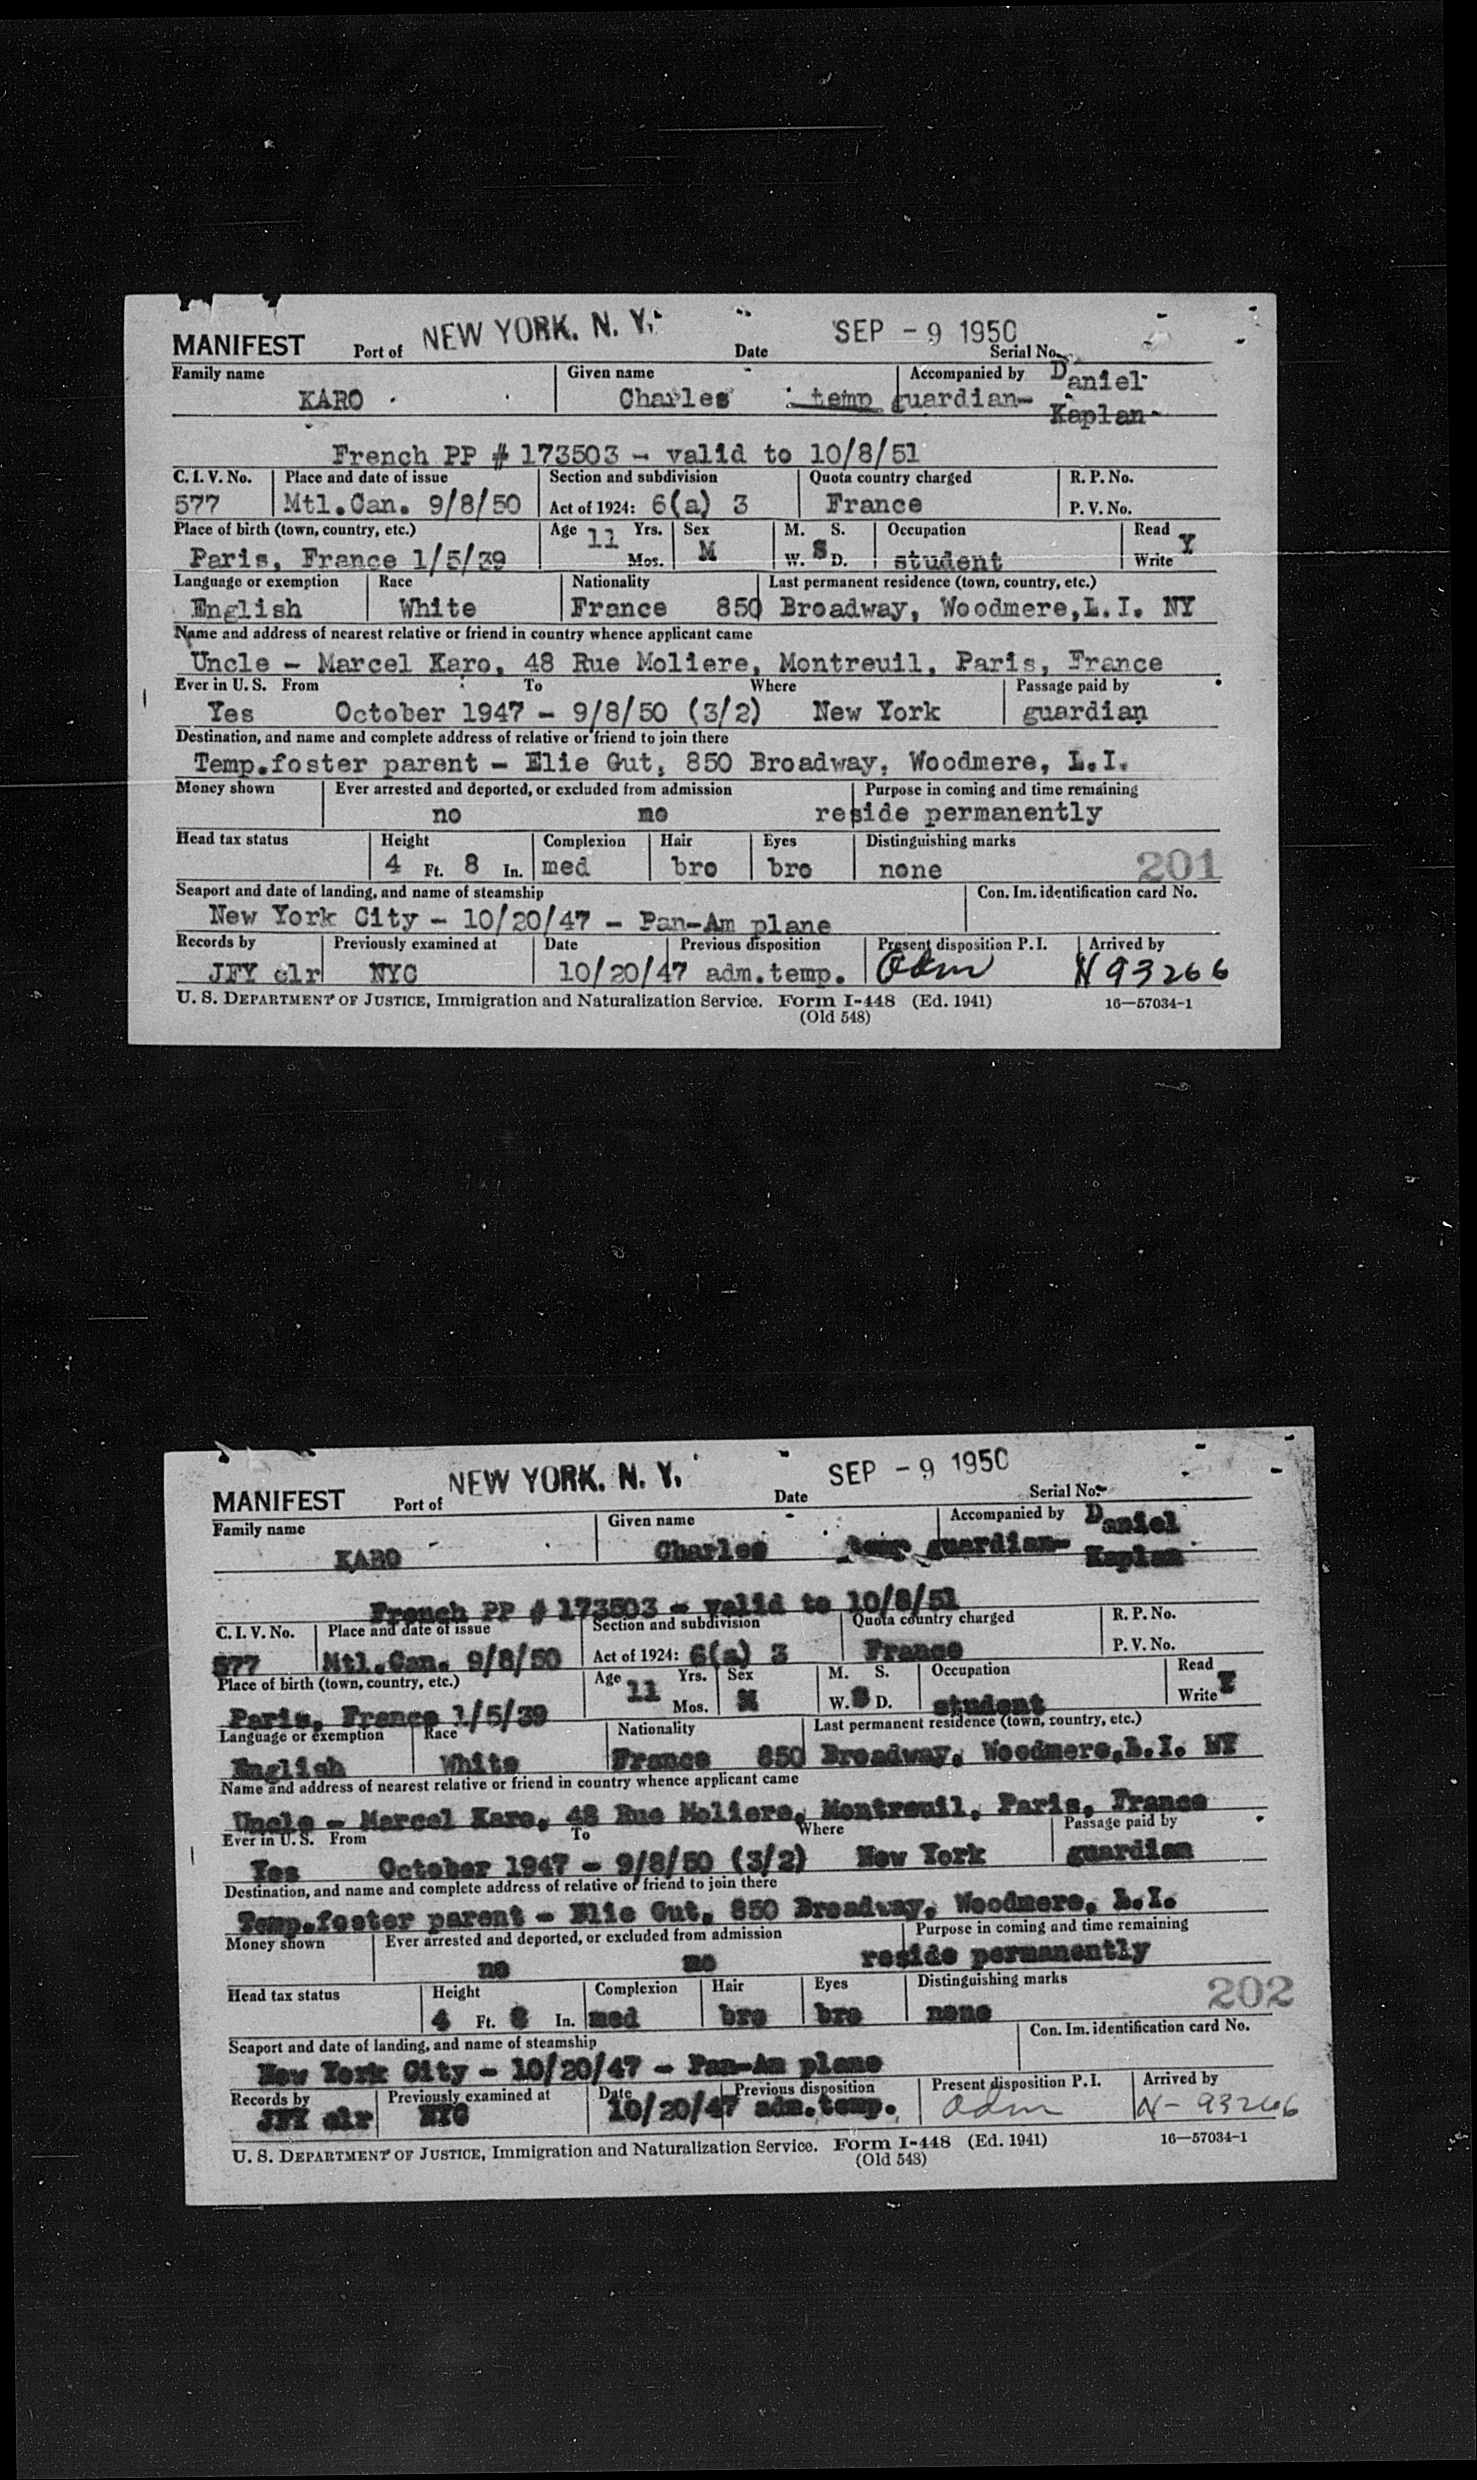 MANIFEST Port of NEW YORK, N. Y. Date SEP - 9 1950 Serial No.
Family name Given name Accompanied by Daniel
KARO Charles temp guardian- Kaplan
French PP # 173503 - valid to 10/8/51
C. I. V. No. Place and date of issue Section and subdivision Quota country charged R. P. No.
577 Mtl.Can. 9/8/50 Act of 1924: 6(a) 3 France P. V. No.
Place of birth (town, country, etc.) Age 11 Yrs. Sex M. S. Occupation Read Y
Paris, France 1/5/39 Mos. M W. S D. student Write
Language or exemption Race Nationality Last permanent residence (town, country, etc.)
English White France 850 Broadway, Woodmere,L.I. NY
Name and address of nearest relative or friend in country whence applicant came
Uncle - Marcel Karo, 48 Rue Moliere, Montreuil, Paris, France
Ever in U. S. From To Where Passage paid by
Yes October 1947 - 9/8/50 (3/2) New York guardian
Destination, and name and complete address of relative or friend to join there
Temp.foster parent - Elie Gut, 850 Broadway, Woodmere, L.I.
Money shown Ever arrested and deported, or excluded from admission Purpose in coming and time remaining
no no reside permanently
Head tax status Height Complexion Hair Eyes Distinguishing marks
4 Ft. 8 In. med bro bro none 201
Seaport and date of landing, and name of steamship Con. Im. identification card No.
New York City - 10/20/47 - Pan-Am plane
Records by Previously examined at Date Previous disposition Present disposition P. I. Arrived by
JFY clr NYC 10/20/47 adm.temp. Adm N 93266
U. S. DEPARTMENT OF JUSTICE, Immigration and Naturalization Service. Form I-448 (Ed. 1941) 16—57034-1
(Old 548)
MANIFEST Port of NEW YORK, N. Y. Date SEP - 9 1950 Serial No.
Family name Given name Accompanied by Daniel
KARO Charles temp guardian- Kaplan
French PP # 173503 - valid to 10/8/51
C. I. V. No. Place and date of issue Section and subdivision Quota country charged R. P. No.
577 Mtl.Can. 9/8/50 Act of 1924: 6(a) 3 France P. V. No.
Place of birth (town, country, etc.) Age 11 Yrs. Sex M. S. Occupation Read Y
Paris, France 1/5/39 Mos. M W. S D. student Write
Language or exemption Race Nationality Last permanent residence (town, country, etc.)
English White France 850 Broadway, Woodmere,L.I. NY
Name and address of nearest relative or friend in country whence applicant came
Uncle - Marcel Karo, 48 Rue Moliere, Montreuil, Paris, France
Ever in U. S. From To Where Passage paid by
Yes October 1947 - 9/8/50 (3/2) New York guardian
Destination, and name and complete address of relative or friend to join there
Temp.foster parent - Elie Gut, 850 Broadway, Woodmere, L.I.
Money shown Ever arrested and deported, or excluded from admission Purpose in coming and time remaining
no no reside permanently
Head tax status Height Complexion Hair Eyes Distinguishing marks 202
4 Ft. 8 In. med bro bro none
Seaport and date of landing, and name of steamship Con. Im. identification card No.
New York City - 10/20/47 - Pan-Am plane
Records by Previously examined at Date Previous disposition Present disposition P. I. Arrived by
JFY clr NYC 10/20/47 adm.temp. Adm N- 93266
U. S. DEPARTMENT OF JUSTICE, Immigration and Naturalization Service. Form I-448 (Ed. 1941) 16—57034-1
(Old 548)